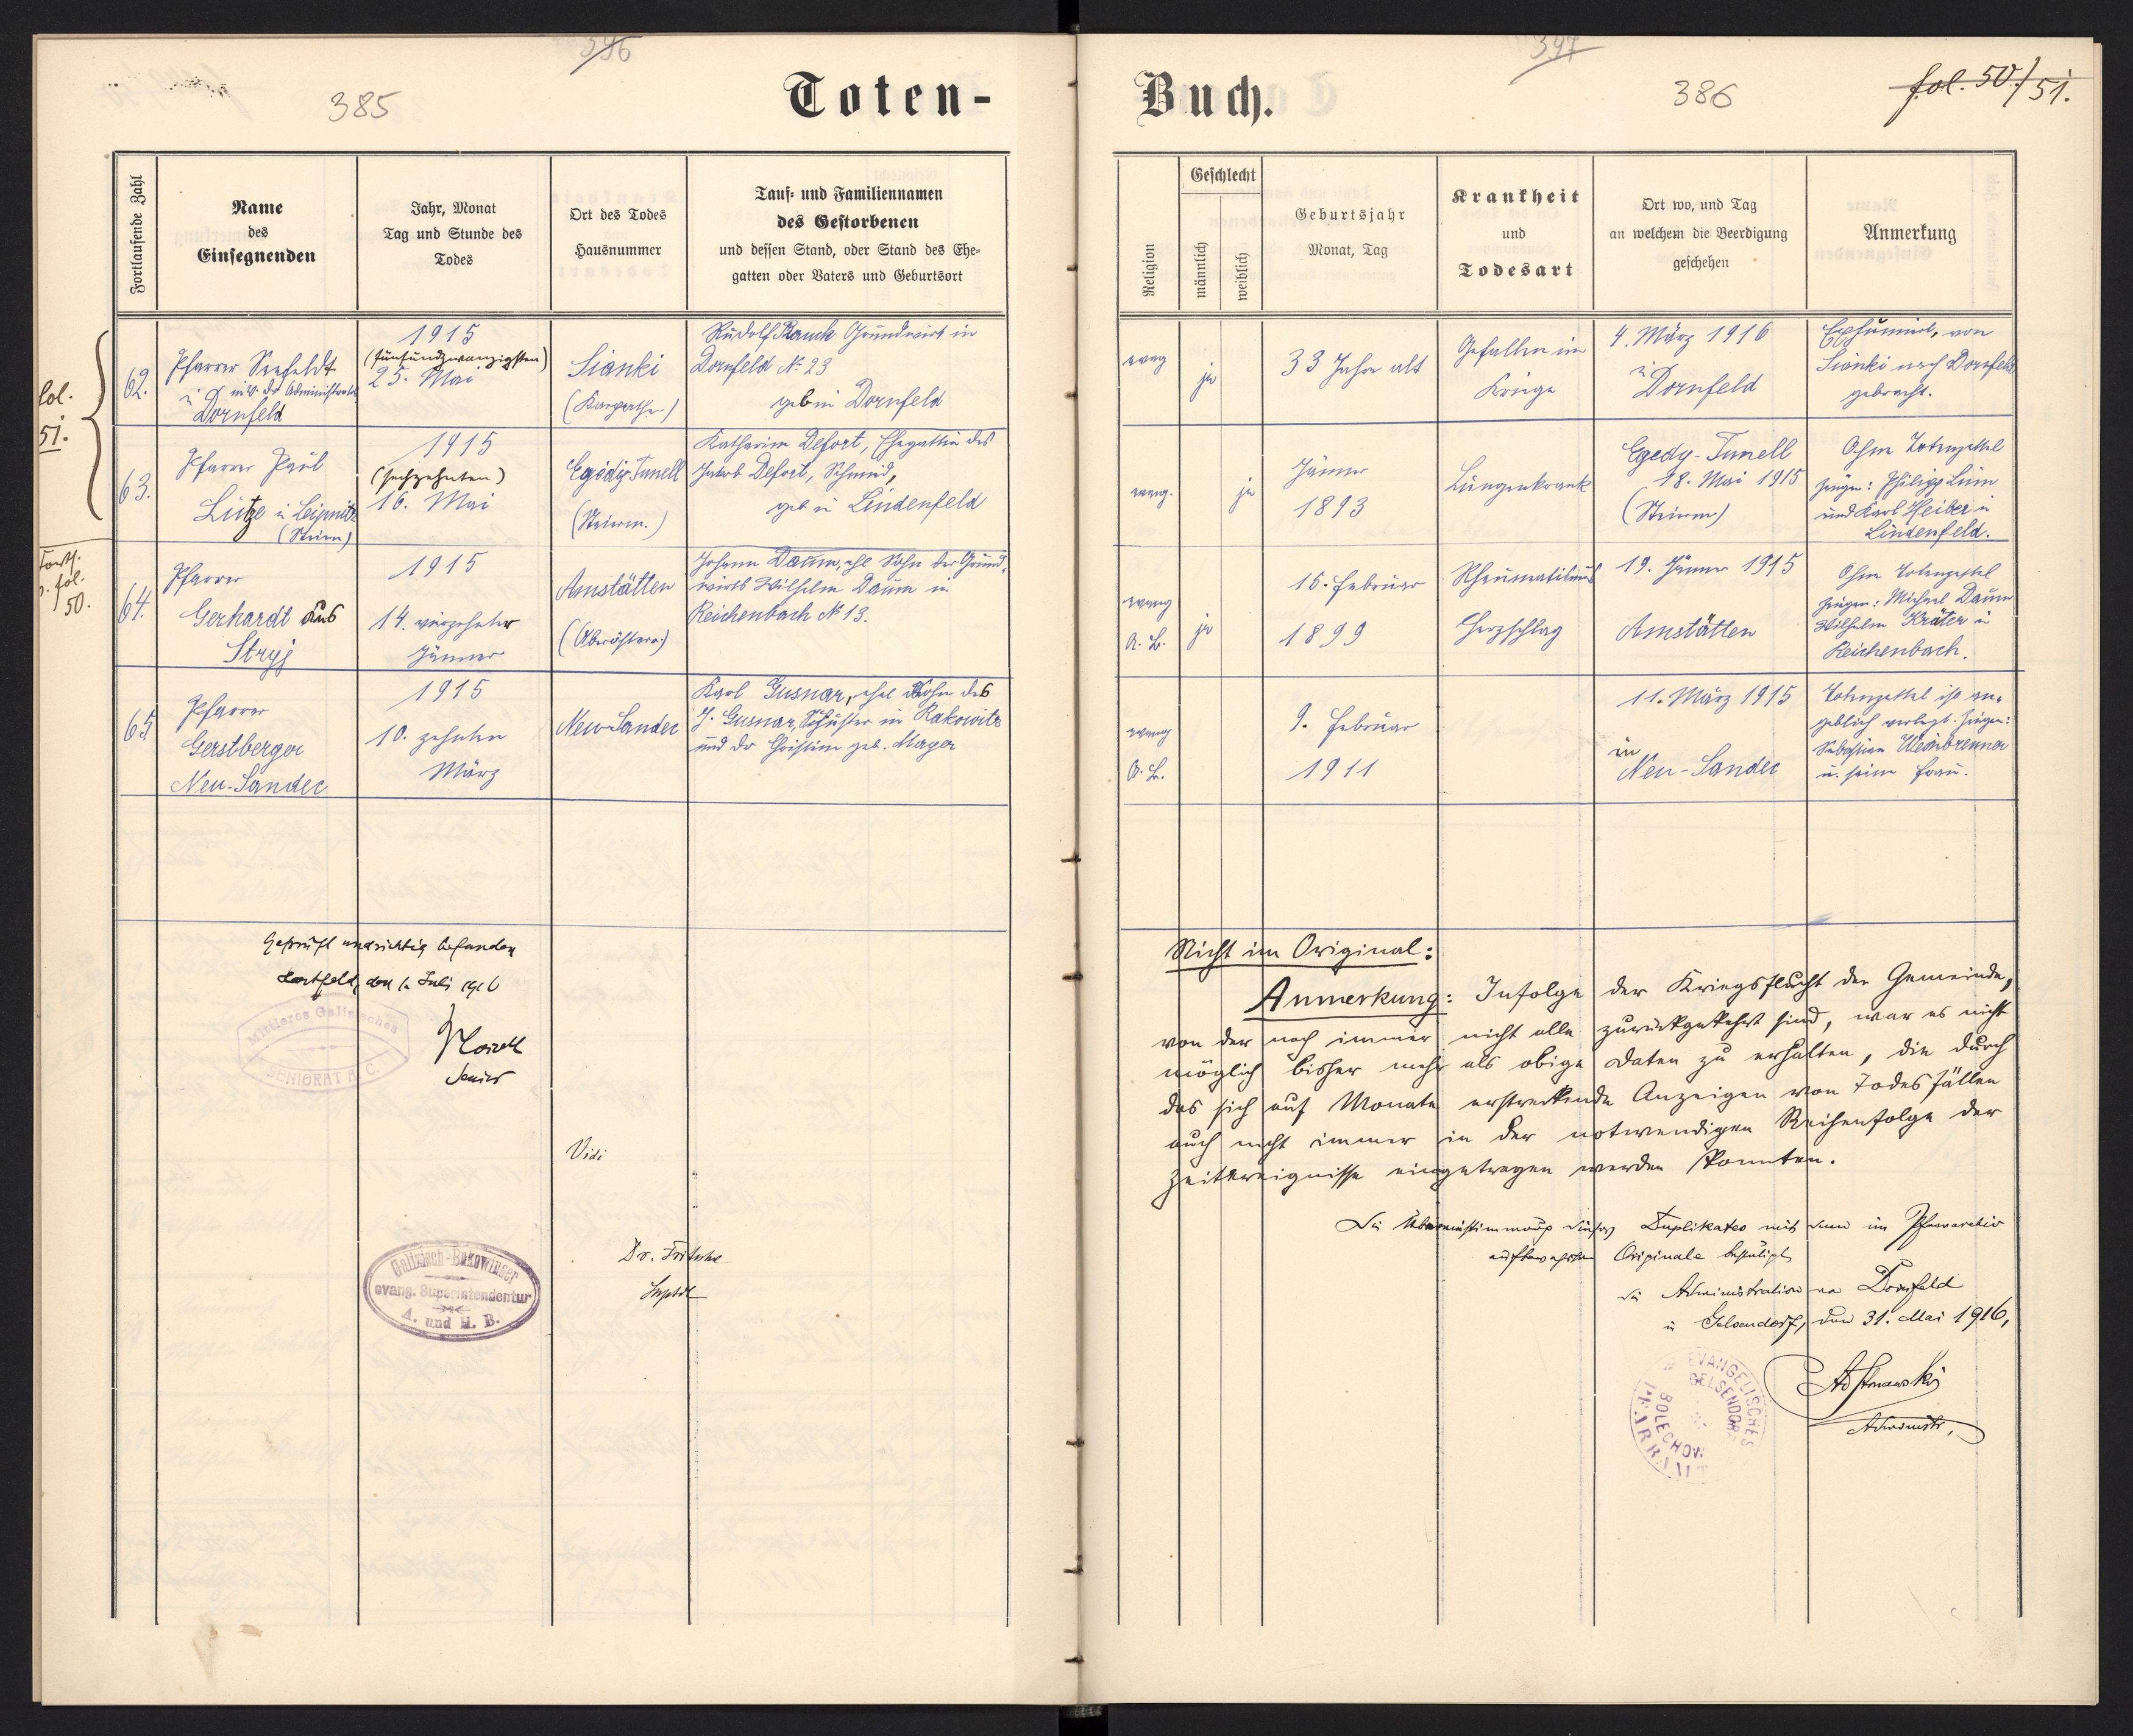 396
385
Toten-
fol.
51.
Forts.
v. fol.
50.
Fortlaufende Zahl
Name
des
Einsegnenden
Jahr, Monat
Tag und Stunde des
Todes
Ort des Todes
Hausnummer
Tauf- und Familiennamen
des Gestorbenen
und dessen Stand, oder Stand des Ehe-
gatten oder Vaters und Geburtsort
62.
Pfarrer Seefeldt
in
Dornfeld
1915
(fünfundzwanzigsten)
25. Mai
Sianki
(Karpathen)
Rudolf Rauch Grundwirt in
Dornfeld № 23
geb in Dornfeld
63.
Pfarrer Paul
Lütze in Leipnitz
(Steierm)
1915
(sechzehnten)
16. Mai
Egidy Tunell
(Steierm.)
Katharina Defort, Ehegattin des
Jakob Defort, Schmied,
geb in Lindenfeld
64.
Pfarrer
Gerhardt aus
Stryj
1915
14. vierzehnter
Jänner
Amstätten
(Oberösterr.)
Johann Daum, ehl Sohn des Grund-
wirts Wilhelm Daum in
Reichenbach № 13.
65.
Pfarrer
Gerstberger
Neu-Sandec
1915
10. zehnten
März
Neu-Sandec
Karl Gusnar, ehel Sohn des
J. Gusnar, Schuster in Rakowitz
und der Christine geb. Mager
Geprüft und richtig befunden
Hartfeld, den 1. Juli 1916
Mittleres Galizisches
SENIORAT A. C.
Senior
Vidi
Dr. Fritsche
Supdt
Galizisch-Bukowinaer
evang. Superintendentur
A. und H. B.
397
386
fol. 50/51.
Buch.
Religion
Geschlecht
männlich
weiblich
Geburtsjahr
Monat, Tag
Krankheit
und
Todesart
Ort wo, und Tag
an welchem die Beerdigung
geschehen
Anmerkung
evang
ja
33 Jahre alt
Gefallen im
Kriege
4. März 1916
in
Dornfeld
Exhumiert, von
Sianki nach Dornfeld
gebracht.
evang.
ja
Jänner
1893
Lungenkrank
Egedy-Tunell
18. Mai 1915
(Steierm)
Ohne Totenzettel
Zeugen: Philipp Linn
und Karl Heiber in
Lindenfeld.
evang
A. B.
ja
15. Februar
1899
Rheumatismus
Herzschlag
19. Jänner 1915
Amstätten
Ohne Totenzettel
Zeugen: Michael Daum
Wilhelm Kräter in
Reichenbach.
evang
A. B.
9. Februar
1911
11. März 1915
in
Neu-Sandec
Totenzettel ist an-
geblich verlegt. Zeugen:
Sebastian Weinbrenner
u. seine Frau.
Nicht im Original:
Anmerkung: Infolge der Kriegsflucht der Gemeinde,
von der noch immer nicht alle zurückgekehrt sind, war es nicht
möglich bisher mehr als obige Daten zu erhalten, die durch
das sich auf Monate erstreckende Anzeigen von Todesfällen
auch nicht immer in der notwendigen Reihenfolge der
Zeitereignisse eingetragen werden konnten.
Die Übereinstimmung dieses Duplikates mit dem im Pfarrarchiv
aufbewahrten Originale bestätigt
die Administration von Dornfeld
in Gelsendorf, den 31. Mai 1916,
EVANGELISCHES
PFARRAMT
GELSENDORF
BOLECHOW
Administr.